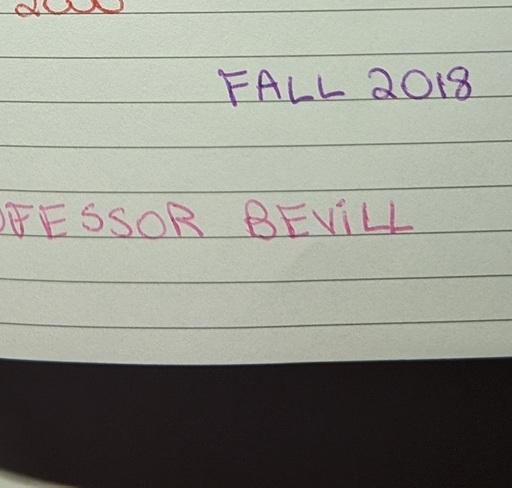 FALL 2018
OFESSOR BEVILL